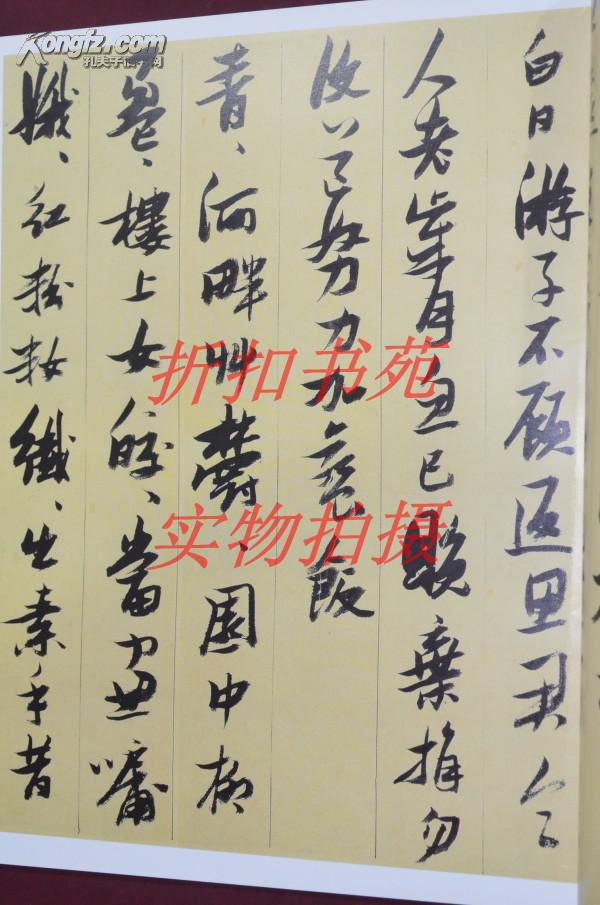 Kongfz.com
孔夫子旧书网
白日游子不顧返思君令
人老歲月忽已晚棄捐勿
復道努力加餐飯
青、河畔艸鬱、園中柳
盈、樓上女皎、當窗牖
娥、紅粉妝纖、出素手昔
折扣书苑
实物拍摄